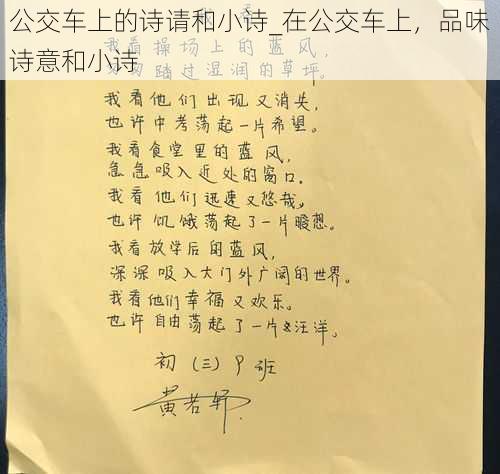 公交车上的诗请和小诗_在公交车上，品味
诗意和小诗
我看操场上的蓝风，
匆匆踏过湿润的草坪。
我看他们出现又消失，
也许中考荡起一片希望。
我看食堂里的蓝风，
急急吸入近处的窗口。
我看他们迅速又悠哉，
也许饥饿荡起了一片暖想。
我看放学后的蓝风，
深深吸入大门外广阔的世界。
我看他们幸福又欢乐。
也许自由荡起了一片汪洋。
初（三）9班
黄若